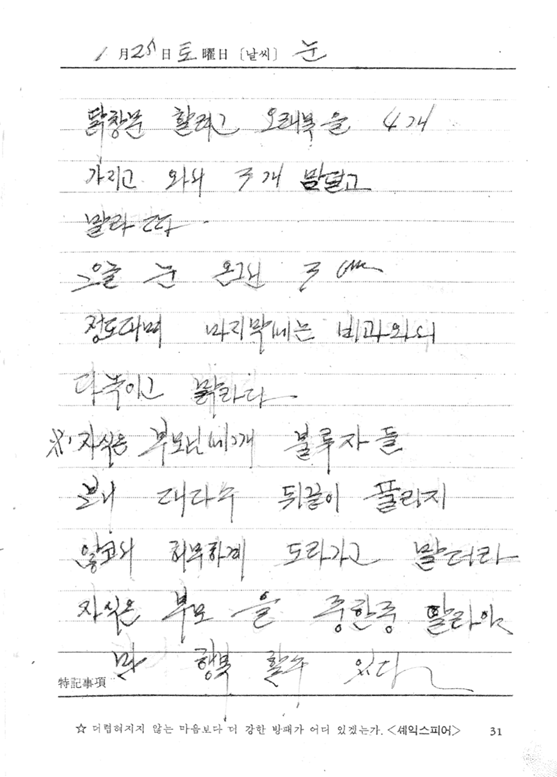 1月25日 토曜日 〔날씨〕 눈
할려고 오래북을 4개
가지고 와서 3개 맘덜고
말라
오늘 눈 온그 3cm
정도대며 마지막에는 비과와서
다녹이고 맑라다
※ 자식은 부모님에개 불루자들
보니 대다수 뒤끝이 풀리지
않고서 허무하게 도라가고 말더라
자식은 부모을 중한중 말라야
만 행복 할수 있다
特記事項
☆ 더럽혀지지 않는 마음보다 더 강한 방패가 어디 있겠는가.〈셰익스피어〉 31